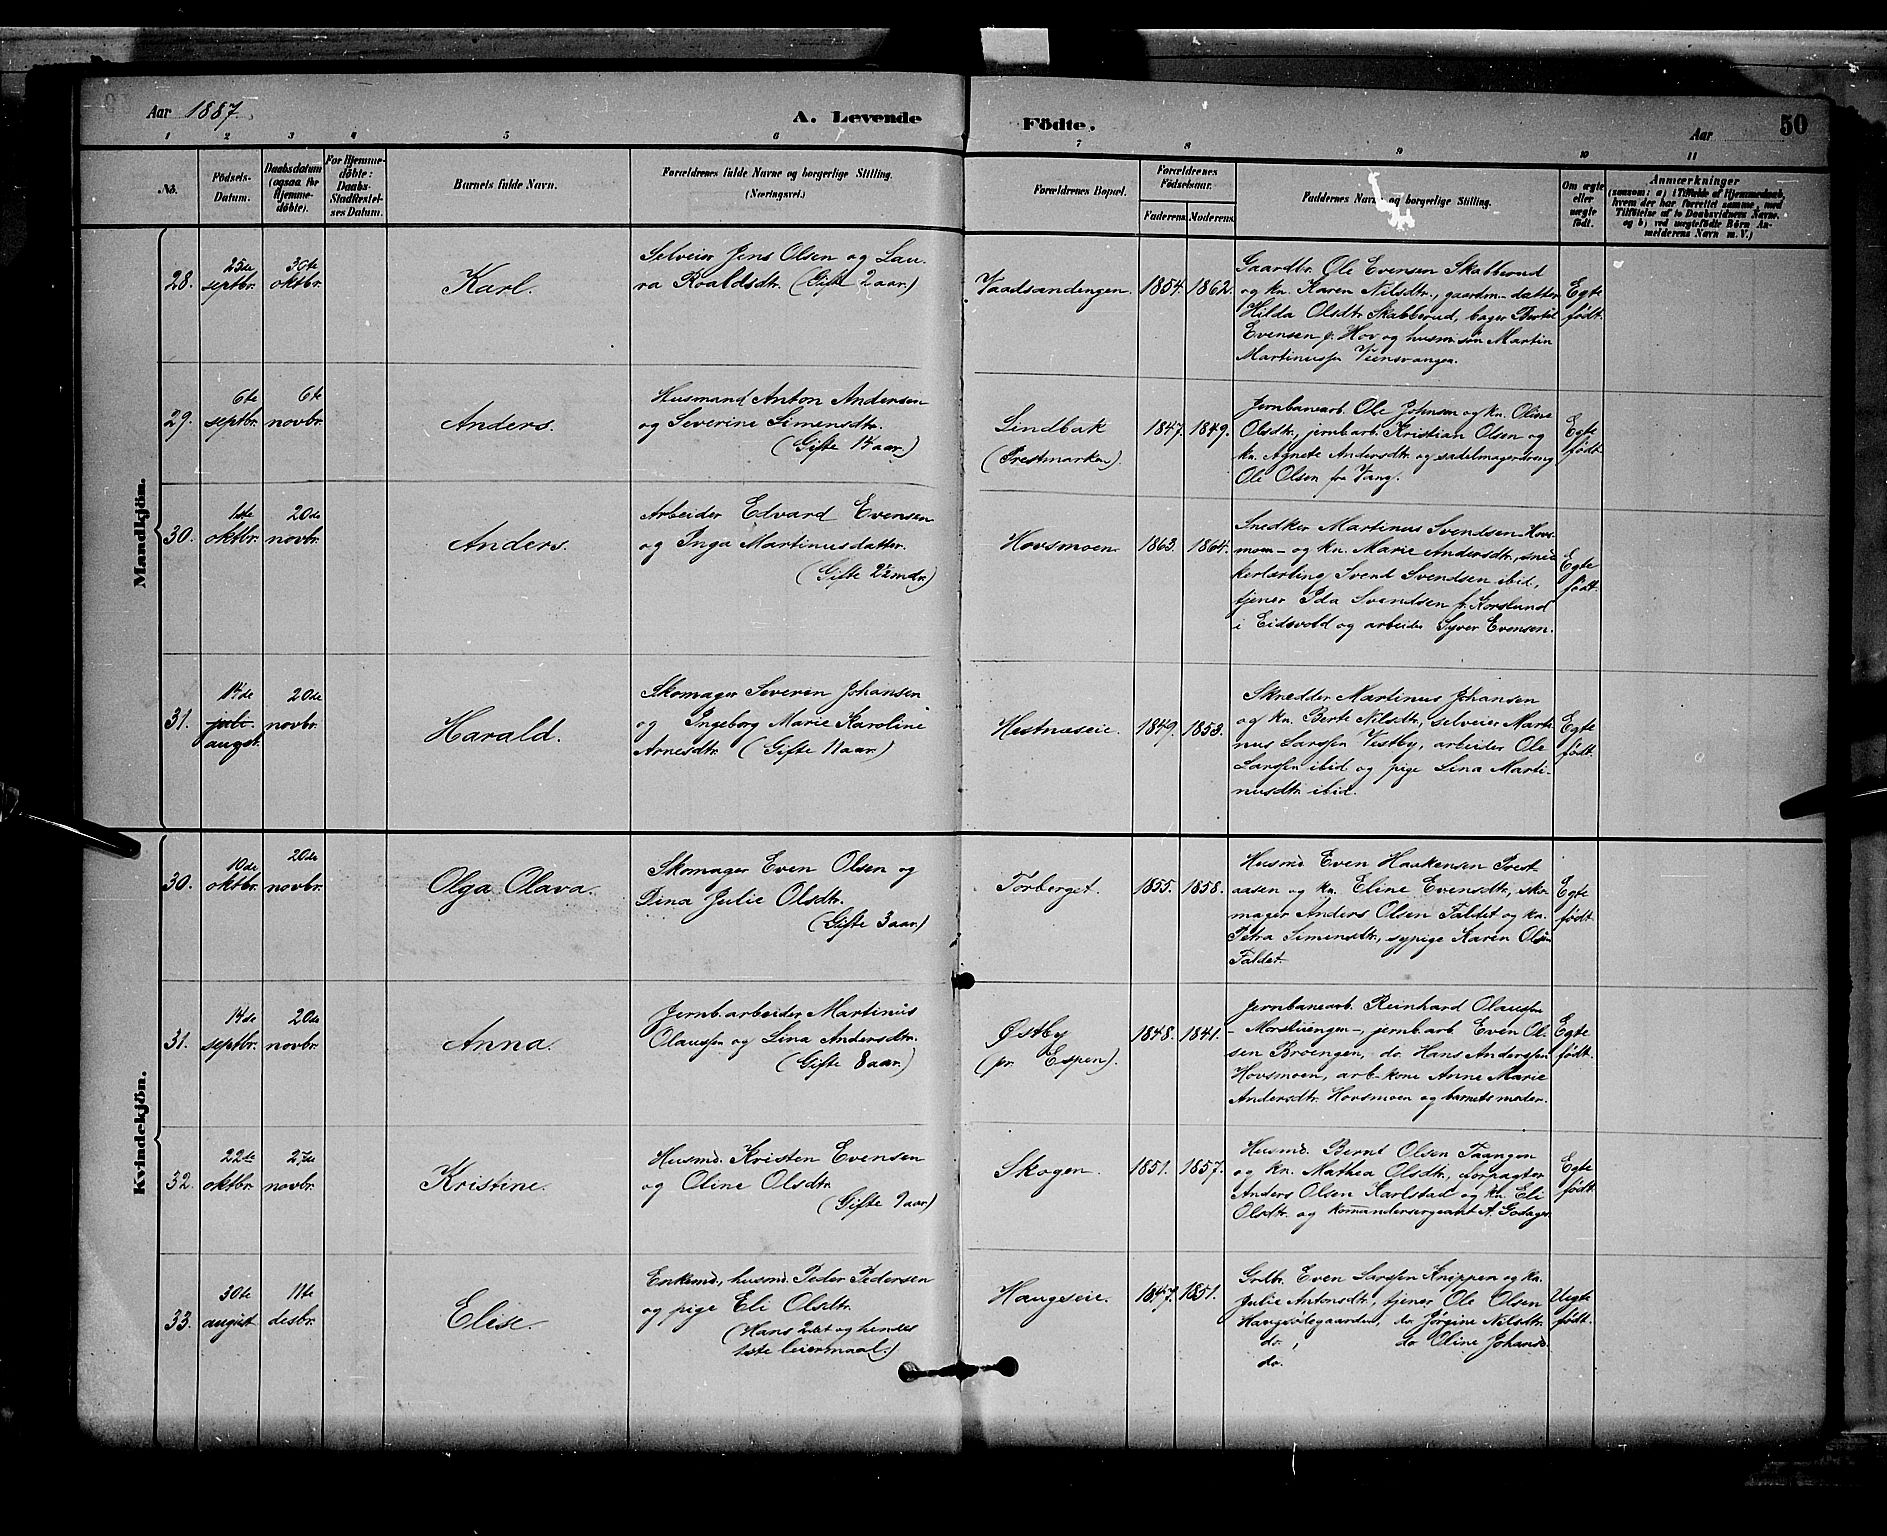 Aar 1887.
A. Levende
Födte.
Aar
50
1 2 3 4 5 6 7 8 9 10 11
No.
Födsels-
Datum.
Daabsdatum
(ogsaa for
Hjemme-
döbte).
For Hjemme-
döbte:
Daabs-
Stadfæstel-
ses Datum.
Barnets fulde Navn.
Forældrenes fulde Navne og borgerlige Stilling.
(Næringsvei.)
Forældrenes Bopæl.
Forældrenes
Födselsaar.
Faderens. Moderens.
Faddernes Navne og borgerlige Stilling.
Om ægte
eller
uægte
födt.
Anmærkninger
(saasom: a) i Tilfælde af Hjemmedaab,
hvem der har forrettet samme, med
Tilföielse af to Daabsvidners Navne,
og b) ved uægtefödte Börn An-
melderens Navn m. V.)
Mandkjön.
28.
25de
septbr.
30te
oktbr.
Karl.
Selveier Jens Olsen og Lau-
ra Roaldsdtr. (Gifte 2 aar.)
Vaadsandengen.
1854. 1862.
Gaardbr. Ole Evensen Skabberud
og kn. Karen Nilsdtr., gaardm.-datter
Hilda Olsdtr. Skabberud, bager Bertil
Evensen p. Hov og husm. søn Martin
Martinussen
Egte
født.
29.
6te
septbr.
6te
novbr.
Anders.
Husmand Anton Andersen
og Severine Simensdtr.
(Gifte 14 aar.)
Lindbak
(Prestmarken).
1847. 1849.
Jernbanearb. Ole Johnsen og kn. Oline
Olsdtr., jernb.arb. Kristian Olsen og
kn. Agnete Andersdtr. og sadelmagerdreng
Ole Olsen fra Vang.
Egte
født.
30.
1ste
oktbr.
20de
novbr.
Anders.
Arbeider Edvard Evensen
og Inga Martinusdatter.
(Gifte 2½ mdr.)
Hovsmoen.
1863. 1864.
Snedker Martinus Svendsen Hovs-
moen – og kn. Marie Andersdtr., sned-
kerlærling Svend Svendsen ibid.,
tjener Ida Svendsen p. Korslund
i Eidsvold og arbeider Syver Evensen.
Egte
født.
31.
14de
juli
augst.
20de
novbr.
Harald.
Skomager Severin Johansen
og Ingeborg Marie Karoline
Arnesdtr. (Gifte 11 aar.)
Hestnæseie.
1849. 1853.
Skredder Martinus Johansen
og kn. Berte Nilsdtr., selveier Marti-
nus Larssen Vestby, arbeider Ole
Larssen ibid og pige Lina Marti-
nusdtr. ibid.
Egte
født.
Kvindekjön.
30.
10de
oktbr.
20de
novbr.
Olga Olava.
Skomager Even Olsen og
Dina Julie Olsdtr.
(Gifte 3 aar.)
Torberget.
1855. 1858.
Husmd. Even Haakensen Prest-
aasen og kn. Eline Evensdtr., sko-
mager Anders Olsen Faldet og kn.
Petra Simensdtr., sypige Karen Olsen
Faldet.
Egte
født.
31.
14de
septbr.
20de
novbr.
Anna.
Jernb.arbeider Martinus
Olaussen og Lina Andersdtr.
(Gifte 8 aar.)
Østby
(pr. Espen).
1848. 1841.
Jernbanearb. Reinhard Olaussen
– Morstuengen –, jernb.arb. Even Ol-
sen Broengen, – do. Hans Anderssen
Hovsmoen, arb.-kone Anne Marie
Andersdtr. Hovsmoen og barnets moder.
Egte
født.
32.
22de
oktbr.
novbr.
Kristine.
Husmd. Kristen Evensen
og Oline Olsdtr.
(Gifte aar.)
Skogen.
1851. 1857.
Husmd. Bernt Olsen Taangen
og kn. Mathea Olsdtr., forpagter
Anders Olsen Karlstad og kn. Eli
Olsdtr. og komandersergeant A. Godager.
Egte
født.
33.
30te
august
11te
desbr.
Elise.
Enkemd., husmd. Peder Pedersen
og pige Eli Olsdtr.
(Hans 2det og hendes
1ste leiermaal.)
Haugseie.
1847. 1851.
Grbr. Even Larssen Knippen og kn.
Julie Antonsdtr., tjener Ole Olsen
Haugsødegaarden, do Jørgine Nilsdtr.
do., do Oline Johansd.
do.
Uegte
født.